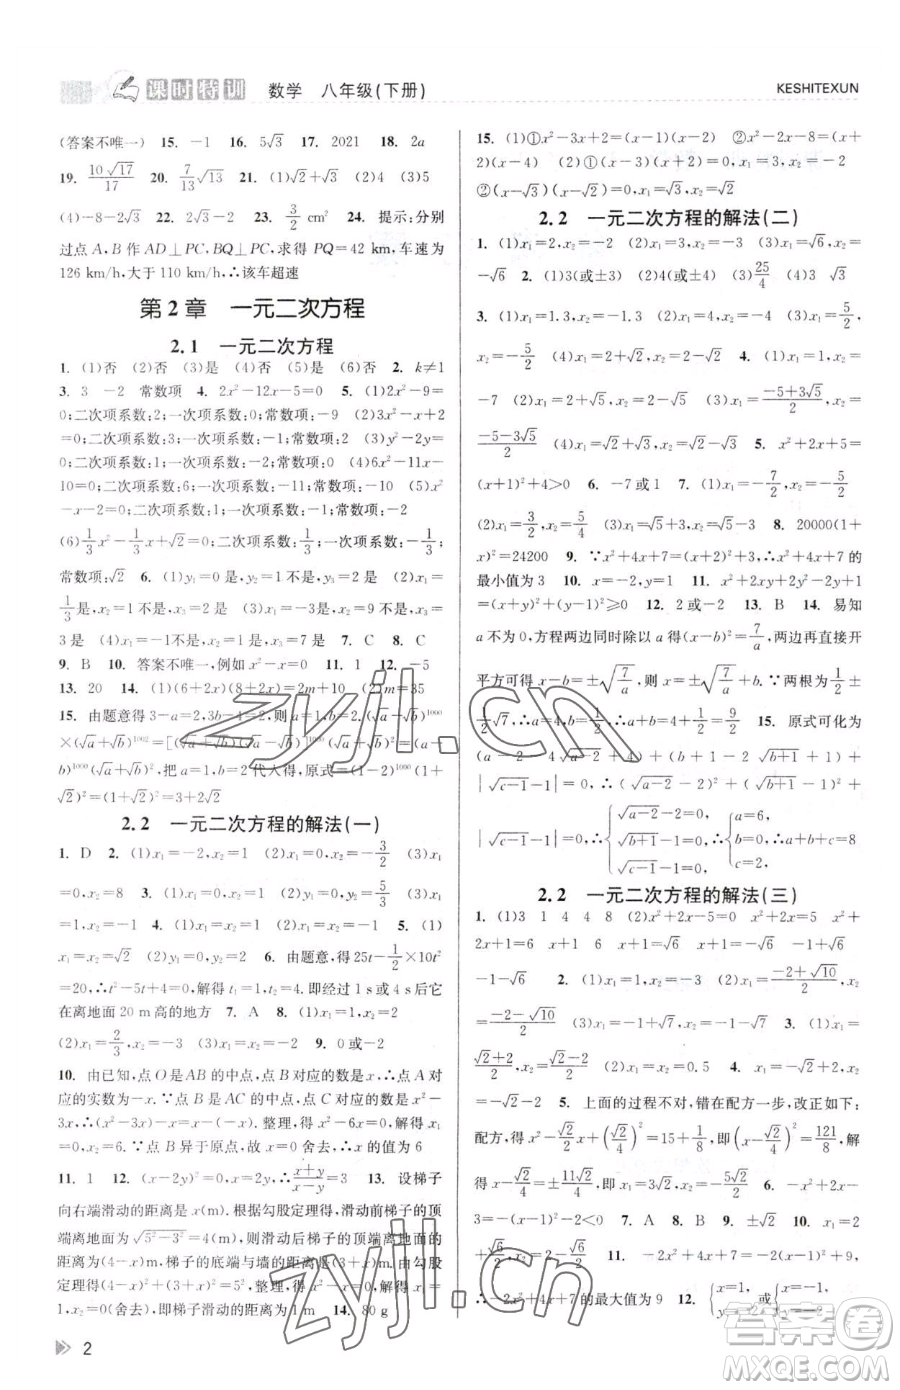 课时特训 数学 八年级(下册) KESHITEXUN
(答案不唯一) 15. -1 16. 5√3 17. 2021 18. 2a
19. 10√17/17 20. 7/13√13 21. (1)√2+√3 (2)4 (3)5
(4)-8-2√3 22. 2√3-2 23. 3/2 cm² 24. 提示:分别
过点 A,B 作 AD⊥PC,BQ⊥PC,求得 PQ=42 km,车速为
126 km/h,大于 110 km/h,∴该车超速
第 2 章 一元二次方程
2.1 一元二次方程
1. (1)否 (2)否 (3)是 (4)否 (5)是 (6)否 2. k≠1
3. 3 -2 常数项 4. 2x²-12x-5=0 5. (1)2x²-9=
0;二次项系数:2;一次项系数:0;常数项:-9 (2)3x²-x+2
=0;二次项系数:3;一次项系数:-1;常数项:2 (3)y²-2y=
0;二次项系数:1;一次项系数:-2;常数项:0 (4)6x²-11x-
10=0;二次项系数:6;一次项系数:-11;常数项:-10 (5)x²-
x-2=0;二次项系数:1;一次项系数:-1;常数项:-2
(6)1/3x²-1/3x+√2=0;二次项系数:1/3;一次项系数:-1/3;
常数项:√2 6. (1)y₁=0是,y₂=1不是 (2)x₁=
1/3是,x₂=1不是,x₃=2是 (3)x₁=0是,x₂=1不是,x₃=
3 是 (4)x₁=-1不是,x₂=1是,x₃=3是 7. C 8. C
9. B 10. 答案不唯一,例如 x²-x=0 11. 1 12. -5
13. 20 14. (1)(6+2x)(8+2x)=2m+10 (2)m=35
15. 由题意得 3-a=2,3b-1=2,则 a=1,b=1,原式=(√a-√b)¹⁰⁰⁰
×(√a+√b)¹⁰⁰²=[(√a+√b)(√a-√b)]¹⁰⁰⁰(√a+√b)²=(a-
b)¹⁰⁰⁰(√a+√b)²,把 a=1,b=2 代入得,原式=(1-2)¹⁰⁰⁰(1+
√2)²=1×(1+√2)²=3+2√2
2.2 一元二次方程的解法(一)
1. D 2. (1)x₁=-4,x₂=1 (2)x₁=0,x₂=-3/2 (3)x₁
=0,x₂=8 3. (1)x₁=0,x₂=4 (2)x₁=0,x₂=5/3 (3)x₁
=0,x₂=-1 4. (1)x₁=x₂=1 (2)x₁=3,x₂=-1 5. (1)
x₁=x₂=√2 (2)y₁=y₂=√3 6. 由题意,得 25t-1/2×10t²
=20,∴t²-5t+4=0,解得 t₁=1,t₂=4.即经过 1 s或4 s后球
在离地面 20 m高的地方 7. A 8. (1)x₁=1,x₂=2
(2)x₁=2/3,x₂=0 (3)x₁=1,x₂=3 9. 0或-2
10. 由已知,点 O是AB 的中点,点 B对应的数是 x,则点 A对
应的实数为-x.∵点 B是 AC 的中点,点 C 对应的数是 x²-
3x,∴(x²-3x)-x=x-(-x).整理,得 x²-6x=0,解得 x₁=
0,x₂=6.∵点 B 异于原点,故 x=0 舍去,∴x的值为 6
11. 1 12. (x-2y)²=0,x=2y,∴(x+y)/(x-y)=3 13. 设梯子
向右端滑动的距离是 x(m).根据勾股定理,滑动前梯子的顶
端离地面为√5²-3²=4(m),则滑动后梯子的顶端离地面的
距离为(4-x)m,梯子的底端与墙的距离为(3+x)m.由勾股
定理,得(4-x)²+(3+x)²=5².整理,得x²-x=0,解得x₁=0,x₂
=1.x=0(舍去),即梯子滑动的距离为 1 m 14. 80 g
15. (1)①x²-3x+2=(x-1)(x-2) ②x²-2x-8=(x+
2)(x-4) (2)①(x-1)(x+2)=0,x₁=1,x₂=-2
②(x-√3)(x-√5)=0,x₁=√3,x₂=√5
2.2 一元二次方程的解法(二)
1. (1)x₁=2,x₂=-2 (2)x₁=3,x₂=-3 (3)x₁=√6,x₂=
-√6 2. (1)3(或±3) (2)4(或±4) (3)25/4
3. (1)x₁=1.3,x₂=-1.3 (2)x₁=4,x₂=-4 (3)x₁=5/2,
x₂=-5/2 (4)x₁=√2,x₂=-√2 4. (1)x₁=1,x₂=
-7 (2)x₁=2+√5,x₂=2-√5 (3)x₁=(-5+3√5)/2,x₂=
(-5-3√5)/2 (4)x₁=√2+√3,x₂=√2-√3 5. x²+2x+5=
(x+1)²+4>0 6. -7 或1 7. (1)x₁=-1/2,x₂=-5/2
(2)x₁=3/2,x₂=5/4 (3)x₁=√5-3,x₂=-√5-3 8. 20000(1+
x)²=24200 9. ∵x²+4x+7=(x+2)²+3,∴x²+4x+7 的
最小值为 3 10. x=-2,y=1 11. x²+2xy+2y²+2y+
1=(x+y)²+(y+1)²≥0 12. 2 或-2 13. B 14. 易知
a不为 0,方程两边同时除以 a 得(x-b)²=7/a,两边再直接开
平方可得 x-b=±√(7/a),x=±√(7/a)+b,则x=±√(7/a)+b=1/2±
1/2√7,∴a=4,b=1/2,∴a+b=4+1/2=9/2 15. 原式可化为
(a-2-4√(a-2)+4)+(b+1-2√(b+1)+1)+
|√(c-1)-1|=0,∴(√(a-2)-2)²+(√(b+1)-1)²+
|√(c-1)-1|=0.∴{√(a-2)-2=0, √(b+1)-1=0, √(c-1)-1=0, ∴{a=6, b=0, c=2, ∴a+b+c=8
2.2 一元二次方程的解法(三)
1. (1)3 1 4 4 8 (2)x²+2x-5=0 x²+2x=5 x²+
2x+1=5+1 (x+1)²=6 x+1=±√6 x₁=√6-1 x₂=
-1-√6 2. (1)x₁=1,x₂=3 (2)x₁=(-2+√10)/2,x₂=
(-2-√10)/2 (3)x₁=-1+√6,x₂=-1-√6 3. (1)x₁=
(√2+2)/2,x₂=(√2-2)/2 (2)x₁=x₂=0.5 4. (1)x₁=1,x₂=
-2 (2)x₁=2,x₂=3 5. 上面的过程不对,错在配方一步,改正如下:
配方,得 x²-√2/2x+(√2/4)²=15+1/8,∴(x-√2/4)²=121/8,解
得 x-√2/4=±11√2/4,∴x₁=3√2,x₂=-5√2/2 6. -x²+4x-
5=-(x-2)²-1<0 7. A 8. B 9. ±√2 10. x₁=
√6/2-2,x₂=-√6/2-2 11. ∵-2x²+4x+7=-2(x-1)²+9,
∴-2x²+4x+7的最大值为 9 12. {x=1, y=1, {x=-1, y=-1
2
zyjl.cn
zyjl.cn
答案圈
MXQE.COM